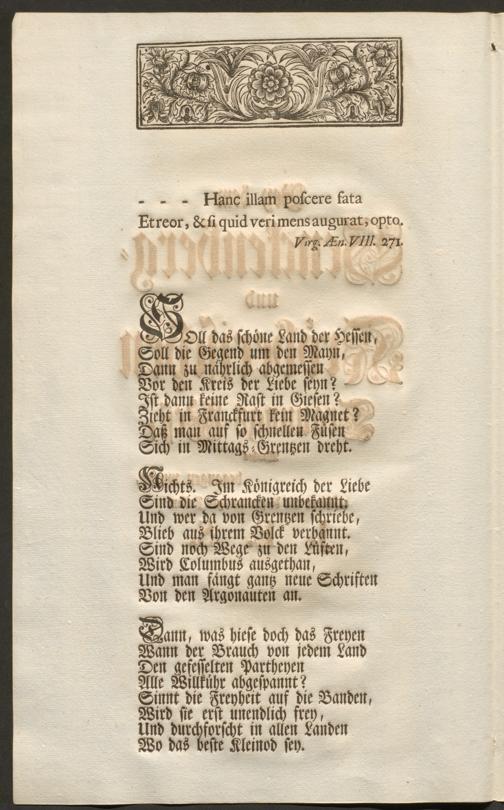 - - - Hanc illam poscere fata
Et reor, & si quid veri mens augurat, opto.
Virg. Æn. VIII. 271.
SOll das schöne Land der Hessen,
Soll die Gegend um den Mayn,
Dann zu nährlich abgemessen
Vor den Kreis der Liebe seyn?
Ist dann keine Rast in Giesen?
Zieht in Franckfurt kein Magnet?
Daß man auf so schnellen Füsen
Sich in Mittags-Grentzen dreht.
Nichts. Im Königreich der Liebe
Sind die Schrancken unbekannt;
Und wer da von Grentzen schriebe,
Blieb aus ihrem Volck verbannt.
Sind noch Wege zu den Lüsten,
Wird Columbus ausgethan,
Und man fängt gantz neue Schriften
Von den Argonauten an.
Dann, was hiese doch das Freyen
Wann der Brauch von jedem Land
Den gefesselten Partheyen
Alle Willkühr abgespannt?
Sinnt die Freyheit auf die Banden,
Wird sie erst unendlich frey,
Und durchforscht in allen Landen
Wo das beste Kleinod sey.